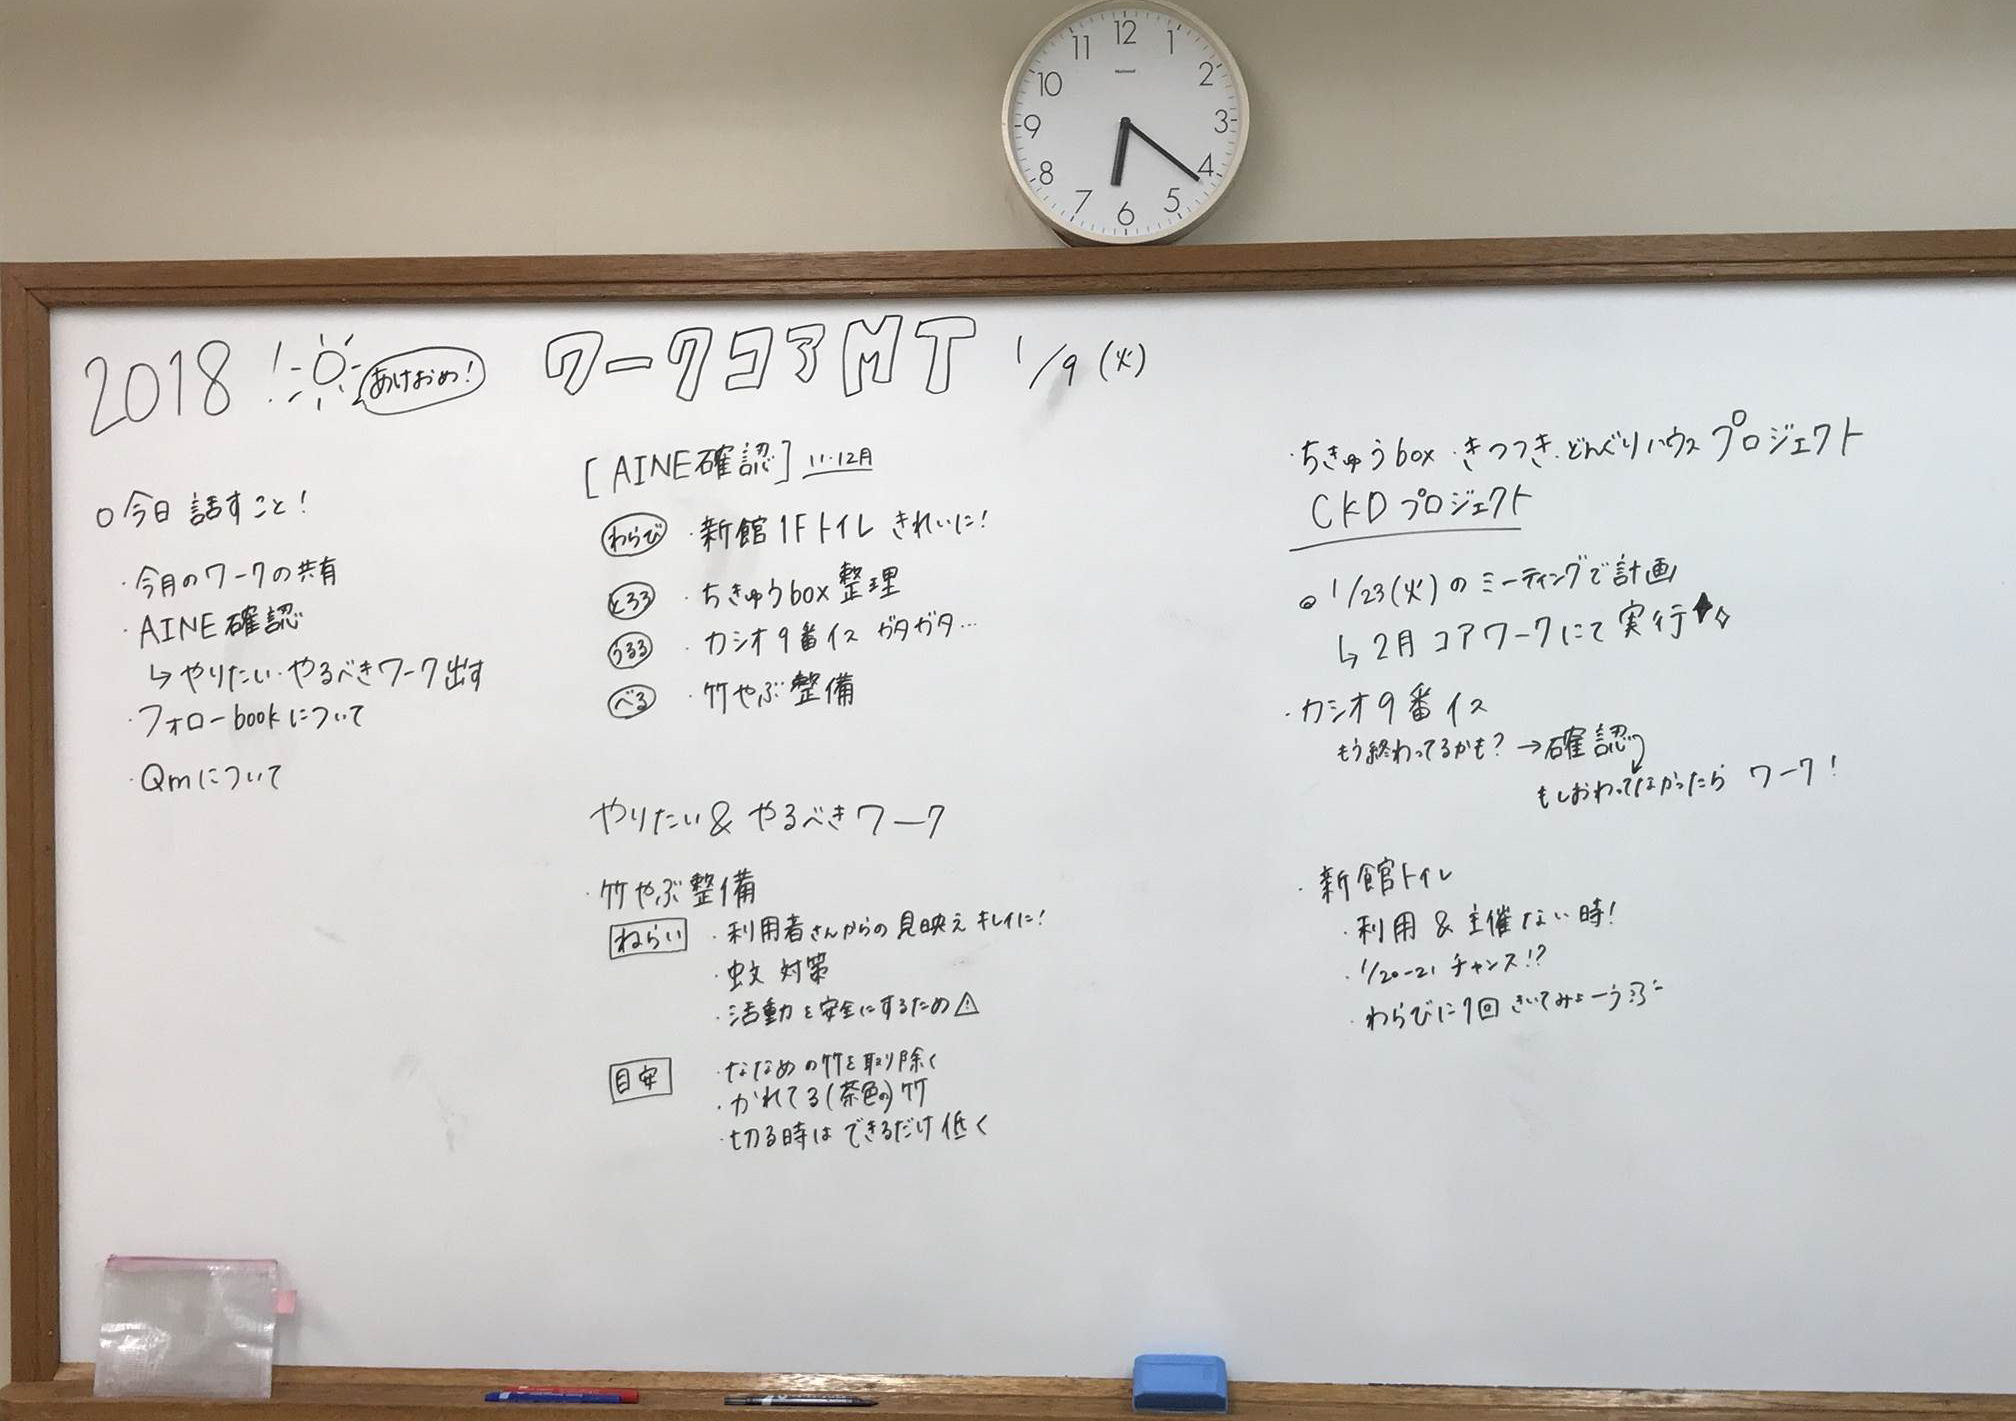 2018! あけおめ! ワークコアMT 1/9 (火)
○今日 話すこと!
・今月のワークの共有
・AINE確認
↳やりたい・やるべきワーク出す
・フォローbookについて
・Qmについて
[AINE確認] 11・12月
わらび ・新館 1Fトイレ きれいに!
とろろ ・ちきゅうbox整理
うるる ・カシオ9番イス ガタガタ…
べる ・竹やぶ整備
やりたい&やるべきワーク
・竹やぶ整備
ねらい ・利用者さんからの見映え キレイに!
・蚊 対策
・活動を安全にするため⚠
目安 ・ななめの竹を取り除く
・かれてる(茶色の)竹
・切る時は できるだけ低く
・ちきゅうbox・きつつき・どんぐりハウスプロジェクト
CKDプロジェクト
◎ 1/23(火)のミーティングで計画
↳2月コアワークにて実行
・カシオ9番イス
もう終わってるかも?→確認
もしおわってなかったら ワーク!
・新館トイレ
・利用 & 主催ない時!
・1/20-21 チャンス!?
・わらびに1回きいてみよーう